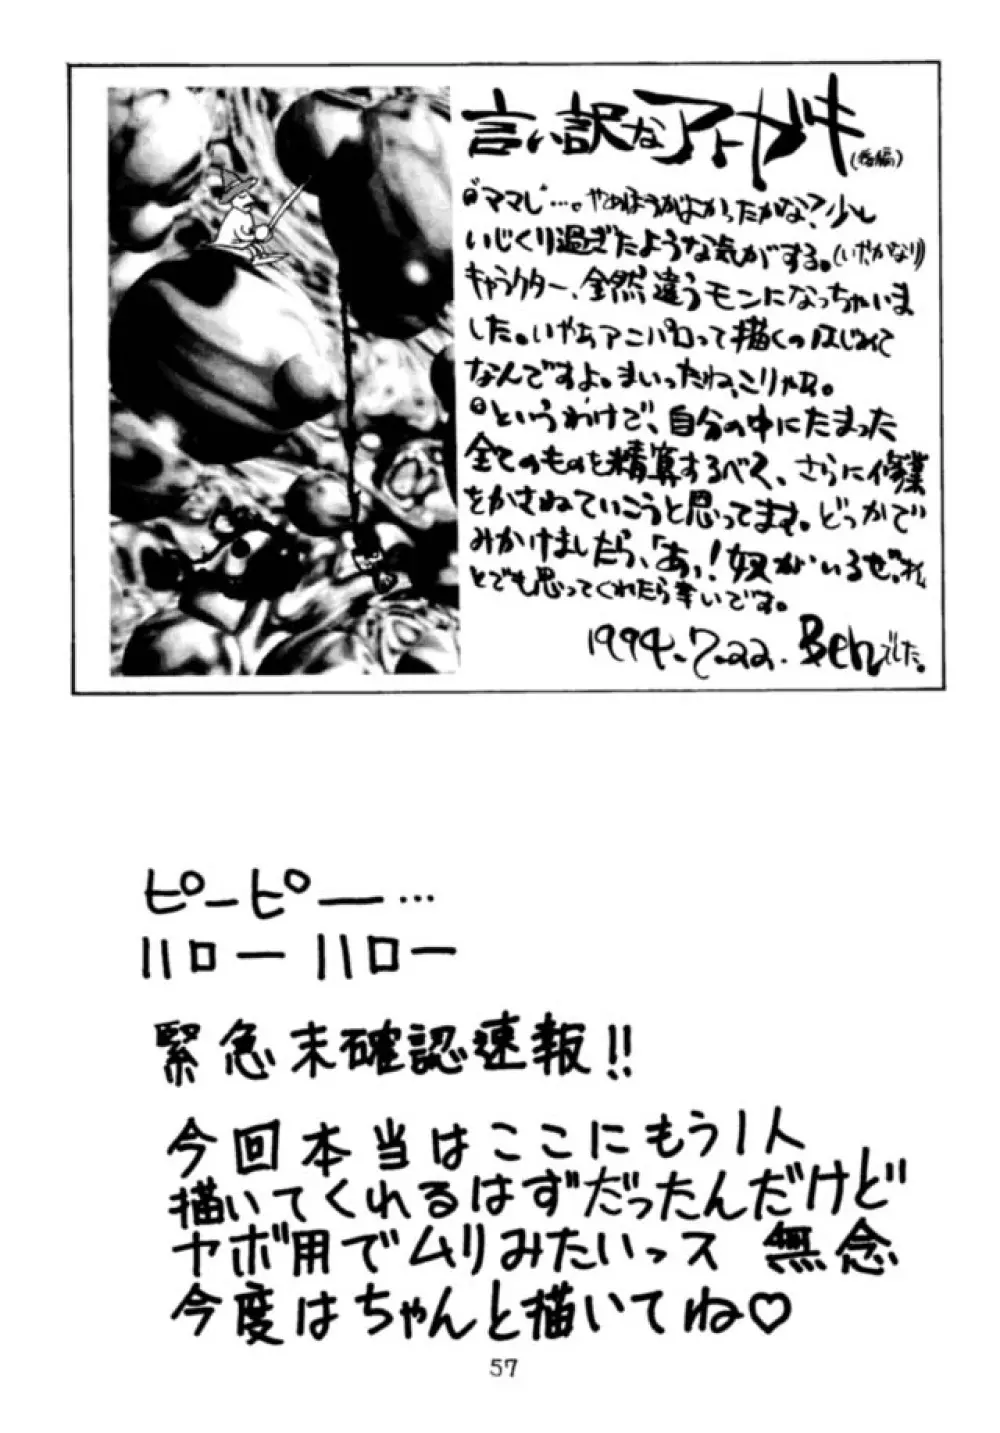 言い訳なアトガキ(番編)
"ママレ…。やめほうがよかったかな?少し
いじくり過ぎたような気がする。(いやかなり)
キャラクター、全然違うモンになっちゃいま
した。いやぁアニパロって描くのはじめて
なんですよ。まいったね、こりゃ。
というわけで、自分の中にたまった
全てのものを精算するべく、さらに修業
をかさねていこうと思ってます。どっかで
みかけましたら、「あっ!奴がいるぜ、
とでも思ってくれたら幸いです。
1994.7.22. Benでした。
ピーピー…
ハローハロー
緊急未確認速報!!
今回本当はここにもう1人
描いてくれるはずだったんだけど
ヤボ用でムリみたいっス 無念
今度はちゃんと描いてね♡
57